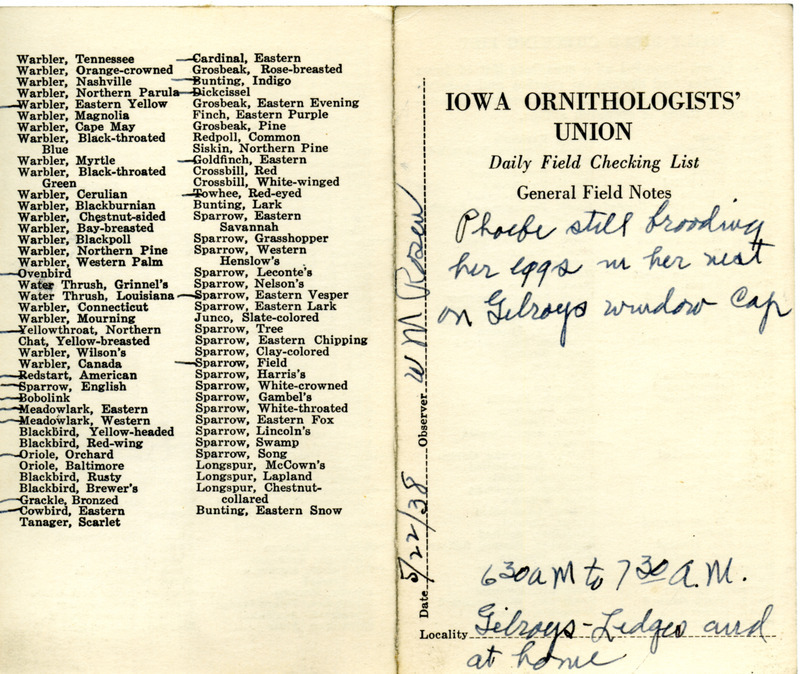 Warbler, Tennessee
Warbler, Orange-crowned
Warbler, Nashville
Warbler, Northern Parula
Warbler, Eastern Yellow
Warbler, Magnolia
Warbler, Cape May
Warbler, Black-throated
Blue
Warbler, Myrtle
Warbler, Black-throated
Green
Warbler, Cerulian
Warbler, Blackburnian
Warbler, Chestnut-sided
Warbler, Bay-breasted
Warbler, Blackpoll
Warbler, Northern Pine
Warbler, Western Palm
Ovenbird
Water Thrush, Grinnel's
Water Thrush, Louisiana
Warbler, Connecticut
Warbler, Mourning
Yellowthroat, Northern
Chat, Yellow-breasted
Warbler, Wilson's
Warbler, Canada
Redstart, American
Sparrow, English
Bobolink
Meadowlark, Eastern
Meadowlark, Western
Blackbird, Yellow-headed
Blackbird, Red-wing
Oriole, Orchard
Oriole, Baltimore
Blackbird, Rusty
Blackbird, Brewer's
Grackle, Bronzed
Cowbird, Eastern
Tanager, Scarlet
Cardinal, Eastern
Grosbeak, Rose-breasted
Bunting, Indigo
Dickcissel
Grosbeak, Eastern Evening
Finch, Eastern Purple
Grosbeak, Pine
Redpoll, Common
Siskin, Northern Pine
Goldfinch, Eastern
Crossbill, Red
Crossbill, White-winged
Towhee, Red-eyed
Bunting, Lark
Sparrow, Eastern
Savannah
Sparrow, Grasshopper
Sparrow, Western
Henslow's
Sparrow, Leconte's
Sparrow, Nelson's
Sparrow, Eastern Vesper
Sparrow, Eastern Lark
Junco, Slate-colored
Sparrow, Tree
Sparrow, Eastern Chipping
Sparrow, Clay-colored
Sparrow, Field
Sparrow, Harris's
Sparrow, White-crowned
Sparrow, Gambel's
Sparrow, White-throated
Sparrow, Eastern Fox
Sparrow, Lincoln's
Sparrow, Swamp
Sparrow, Song
Longspur, McCown's
Longspur, Lapland
Longspur, Chestnut-
collared
Bunting, Eastern Snow
Date 5/22/38 Observer W M Rosen
IOWA ORNITHOLOGISTS'
UNION
Daily Field Checking List
General Field Notes
Phoebe still brooding
her eggs in her nest
on Gilroys window cap
6 30 a M to 7 30 A.M.
Locality Gilroys-Ledges and
at home